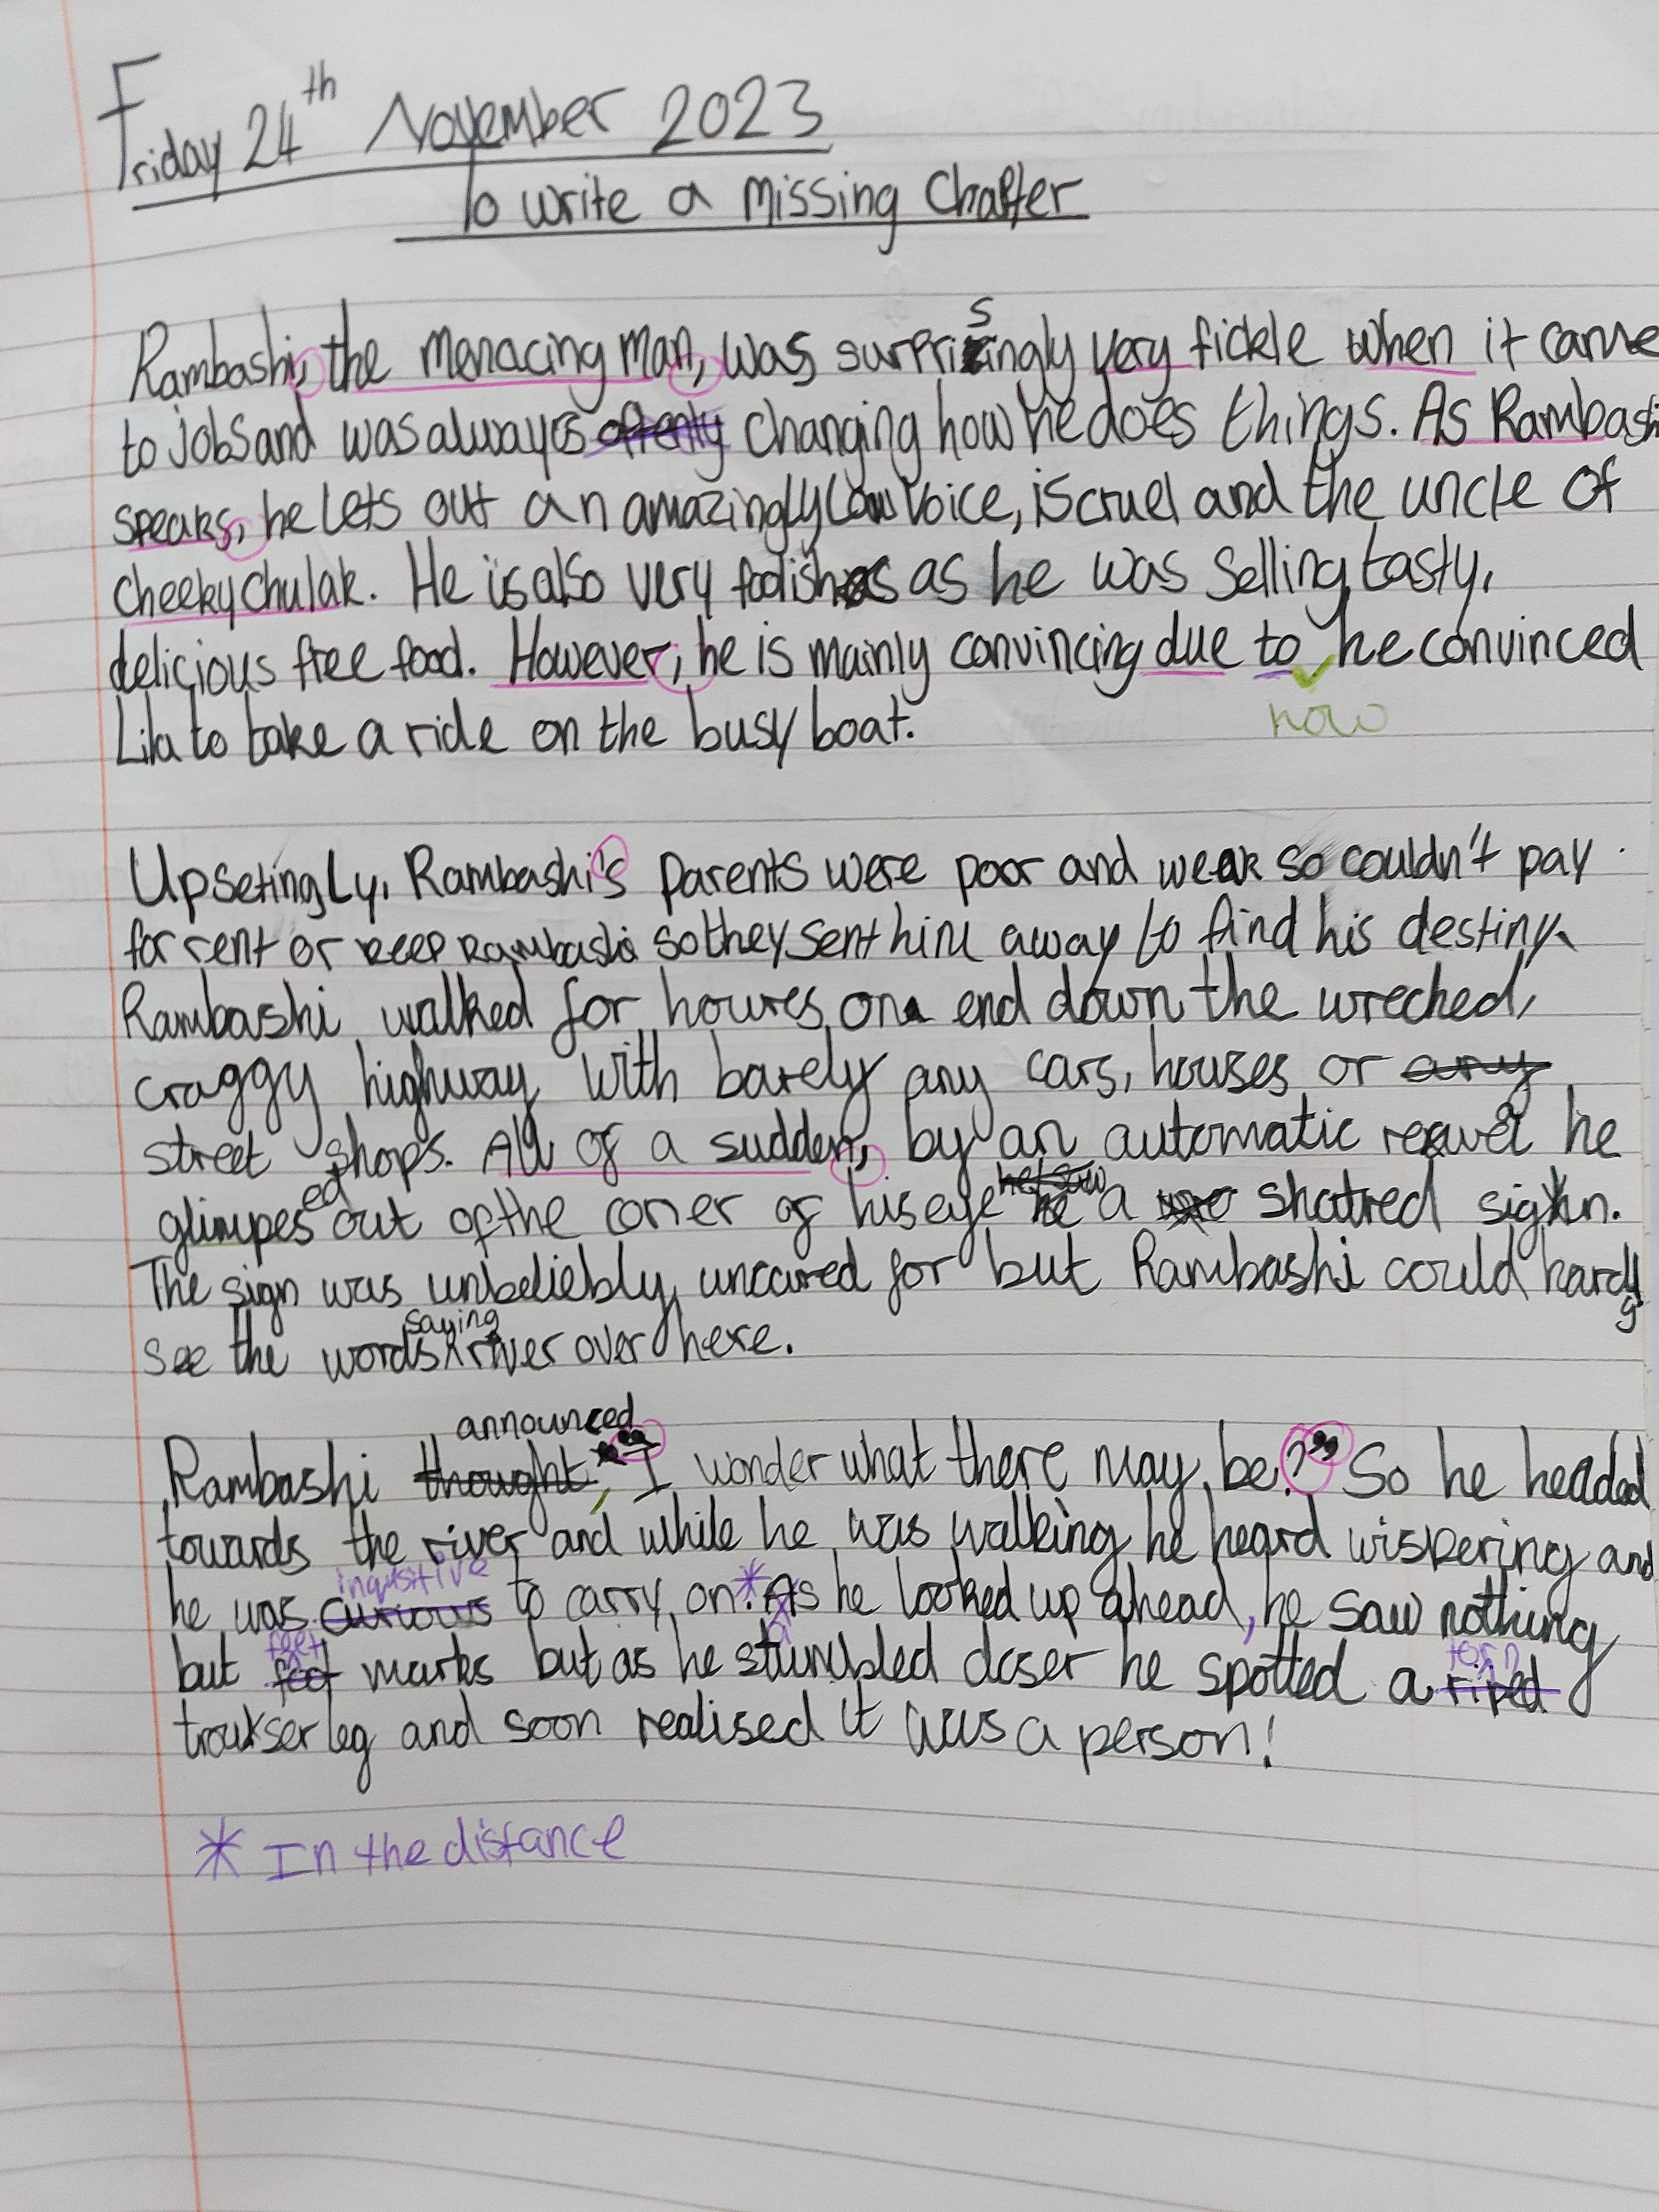 Friday 24th November 2023
To write a missing Chapter
Rambashi, the menacing man, was surprisingly very fickle when it came
to jobs and was always oftenly changing how he does things. As Rambashi
speaks, he lets out an amazingly low voice, is cruel and the uncle of
cheeky chulak. He is also very foolish as he was selling tasty,
delicious free food. However, he is mainly convincing due to he convinced
how
Lila to take a ride on the busy boat.
Upsetingly, Rambashi's parents were poor and weak so couldn't pay
for rent or keep Rambashi so they sent him away to find his destiny.
Rambashi walked for houres on end down the wrecked,
craggy highway with barely any cars, houses or any
street shops. All of a sudden, by an automatic he
glimpesed out of the coner of his eye he saw he a shatred sign.
The sign was unbeliebly uncared for but Rambashi could hardly
see the words saying river over here.
announced
Rambashi thought, "I wonder what there may be?" So he headed
towards the river and while he was walking he heard wispering and
inqusitive
he was curious to carry on.* As he looked up ahead, he saw nothing
feet torn
but foot marks but as he stumbled closer he spotted a riped
trouser leg and soon realised it was a person!
* In the distance